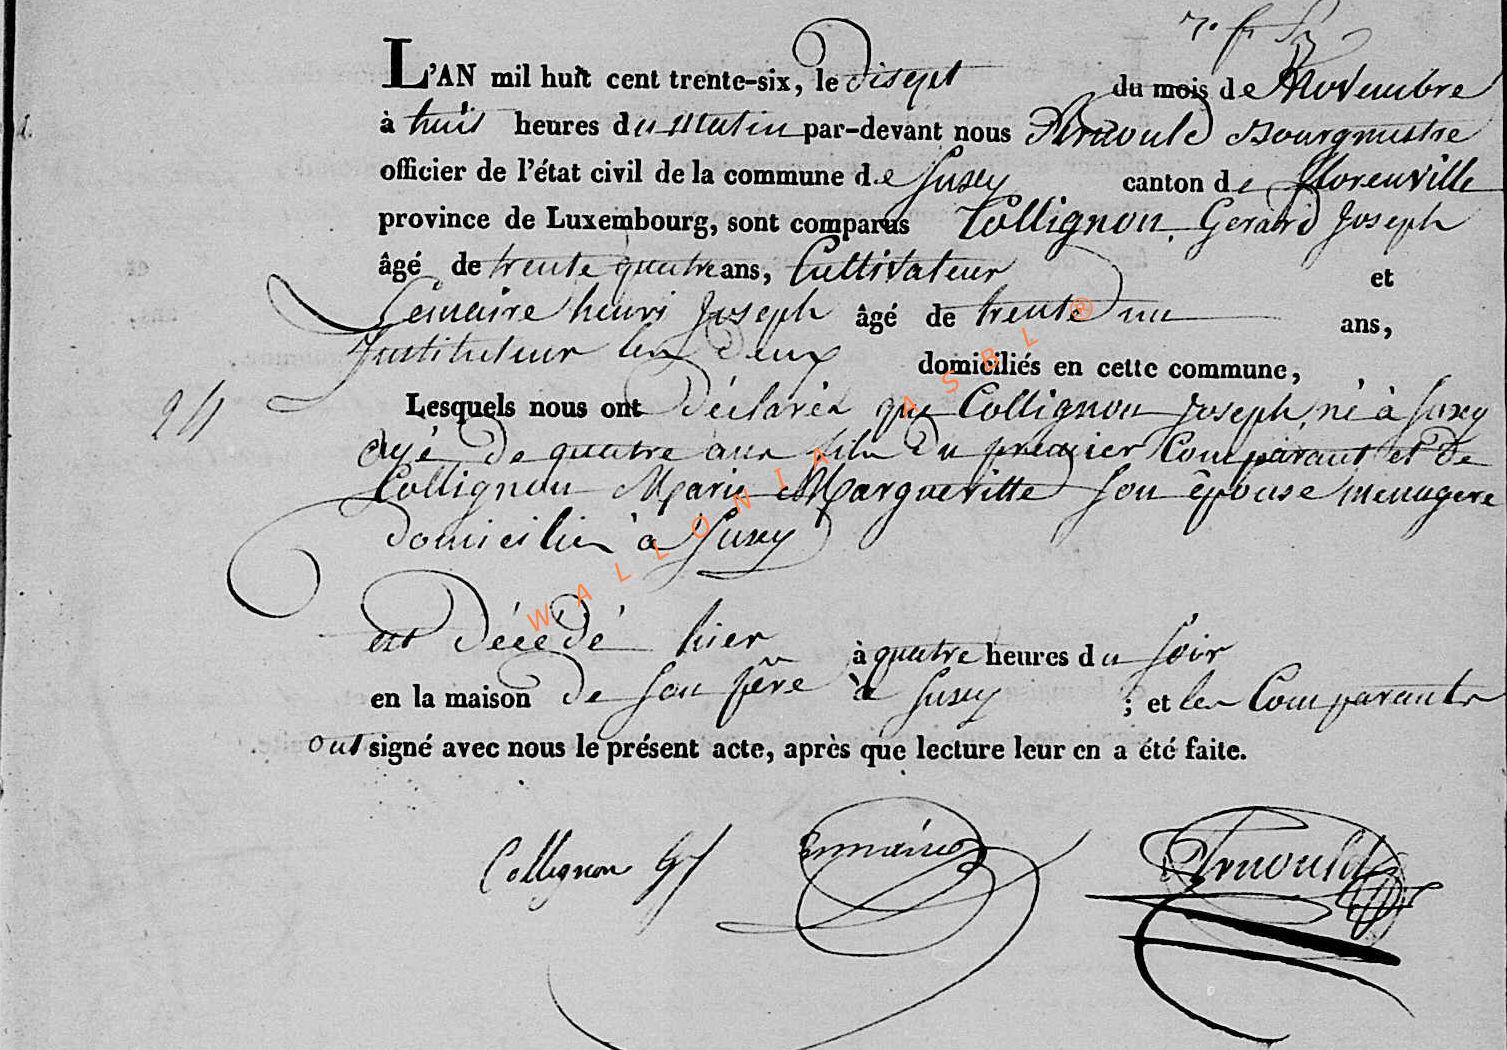 L'AN mil huit cent trente-six, le disept du mois de Novembre
à huit heures du Matin par-devant nous Arnould Bourgmestre
officier de l'état civil de la commune de Suxy canton de Florenville
province de Luxembourg, sont comparus Collignon, Gerard Joseph
âgé de trente quatre ans, Cultivateur et
Lemaire henri Joseph âgé de trente un ans,
Instituteur les deux domiciliés en cette commune,
24
Lesquels nous ont Déclarés que Collignon Joseph, né à Suxy
agé de quatre ans fils du premier Comparant et de
Collignon Marie Margueritte son épouse menagere
domiciliés à Suxy
est Décédé hier à quatre heures du soir
en la maison de son père à Suxy ; et les Comparants
ont signé avec nous le présent acte, après que lecture leur en a été faite.
Collignon GJ Lemaire Arnould
WALLONIA ASBL ®